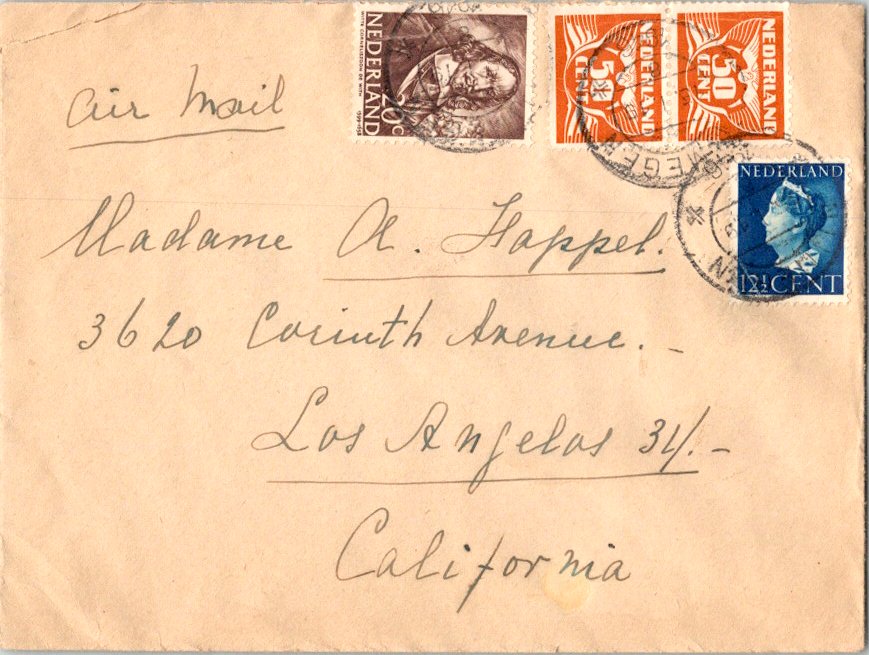 Air Mail
NEDERLAND
WITTE CORNELISZOON DE WITH
1599-1658
20c
NEDERLAND
50
CENT
NEDERLAND
50
CENT
NEDERLAND
12½CENT
Madame A. Happel.
3620 Corinth Avenue.-
Los Angelos 34.-
California